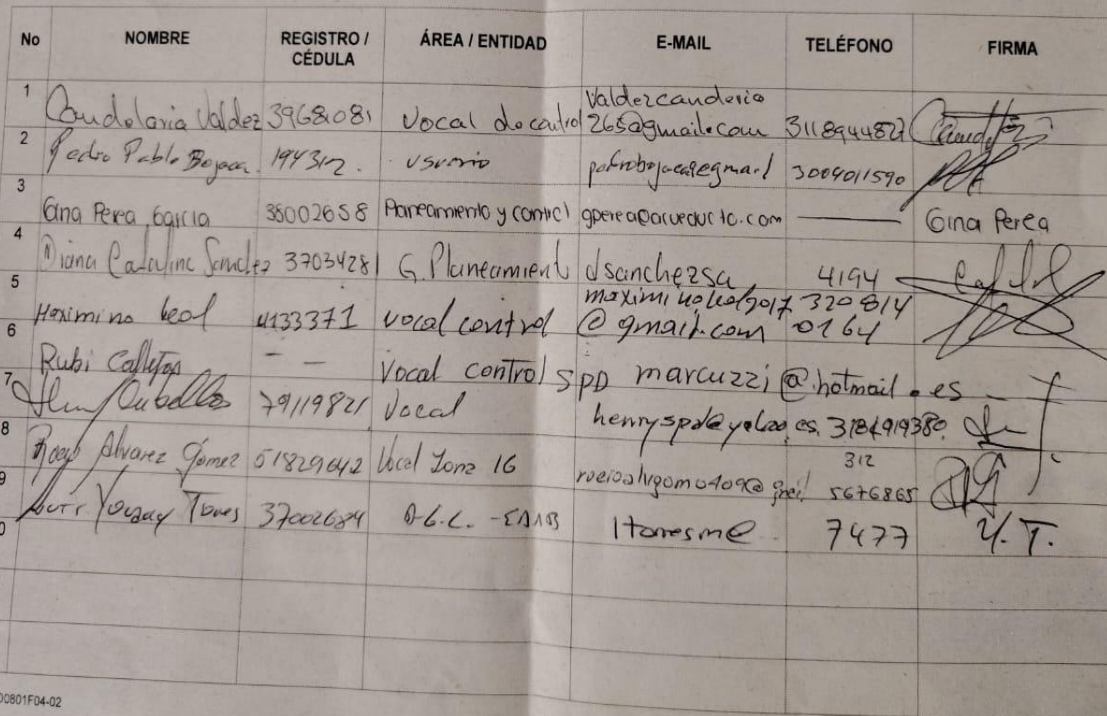 No NOMBRE REGISTRO / CÉDULA ÁREA / ENTIDAD E-MAIL TELÉFONO FIRMA
1 Candelaria Valdez 39681081 Vocal de control Valdezcanderia 265@gmail.com 3118944827
2 Pedro Pablo Bojaca. 194312. usuario 3004011590
3 Gina Perea García 38002658 Planeamiento y control gperea@acueducto.com Gina Perea
4 Diana Catalina Sanchez 37034281 G. Planeamient dsanchezsa 4194
5 Maximino Leal 4133371 vocal control maximinoleal2017 @gmail.com 320814 0164
6 Rubi Callejas - - Vocal control SPD marcuzzi@hotmail.es
7 79119821 Vocal henryspd@yahoo.es. 3184919380
8 Alvarez Gómez 51829642 Vocal Zona 16 312 5676865
9 Torres 37002684 ltorresme 7477 Y. T.
0
00801F04-02